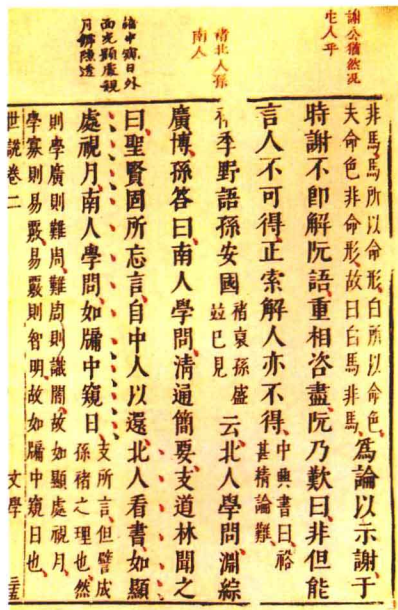 謝公猶然况
它人乎
褚北人孫
南人
牖中窺日外
月
非馬馬所以命形白所以命色
夫命色非命形故曰白馬非馬
爲論以示謝于
時謝不即解阮語重相咨盡阮乃歎曰非但能
言人不可得正索解人亦不得
中興書曰裕
甚精論難
褚季野語孫安國
褚裒孫盛
竝已見
云北人學問淵綜
廣博孫答曰南人學問清通簡要支道林聞之
曰聖賢固所忘言自中人以還北人看書如顯
處視月南人學問如牖中窺日
支所言但譬成
孫褚之理也然
則學廣則難周難周則識闇故如顯處視月
學寡則易覈易覈則智明故如牖中窺日也
世說卷二 文學